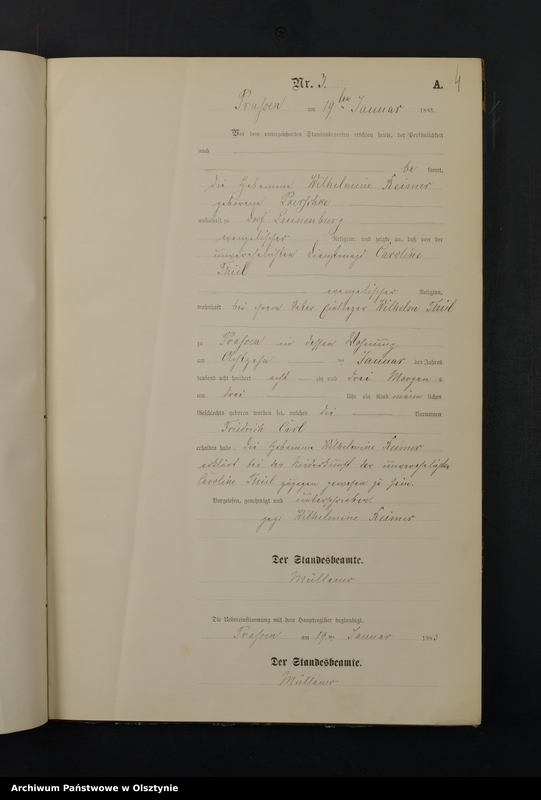 Nr. 3.
A.
4
am 19ten Januar 1883.
Vor dem unterzeichneten Standesbeamten erschien heute, der Persönlichkeit
nach
be kannt,
die Hebamme Wilhelmine Reimer
geborene
wohnhaft zu Dorf Leunenburg
evangelischer Religion, und zeigte an, daß von der
unverehelichten Dienstmagd Caroline
Thiel
evangelischer Religion,
wohnhaft bei ihrem Vater Wilhelm Thiel
zu in dessen Wohnung
am Achtzehn ten Januar des Jahres
tausend acht hundert acht zig und drei Morgens
um drei Uhr ein Kind männ lichen
Geschlechts geboren worden sei, welches die Vornamen
Friedrich Carl
erhalten habe. Die Hebamme Wilhelmine Reimer
erklärt bei der Niederkunft der unverehelichten
Caroline Thiel zugegen gewesen zu sein.
Vorgelesen, genehmigt und unterschrieben
gez: Wilhelmine Reimer
Der Standesbeamte.
Die Uebereinstimmung mit dem Hauptregister beglaubigt.
am 19ten Januar 1883
Der Standesbeamte.
Archiwum Państwowe w Olsztynie